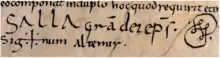 eocomponat induplo hocquodrequirit ecn
SALLA grã dei eps̃.
Sig+num Altemir.